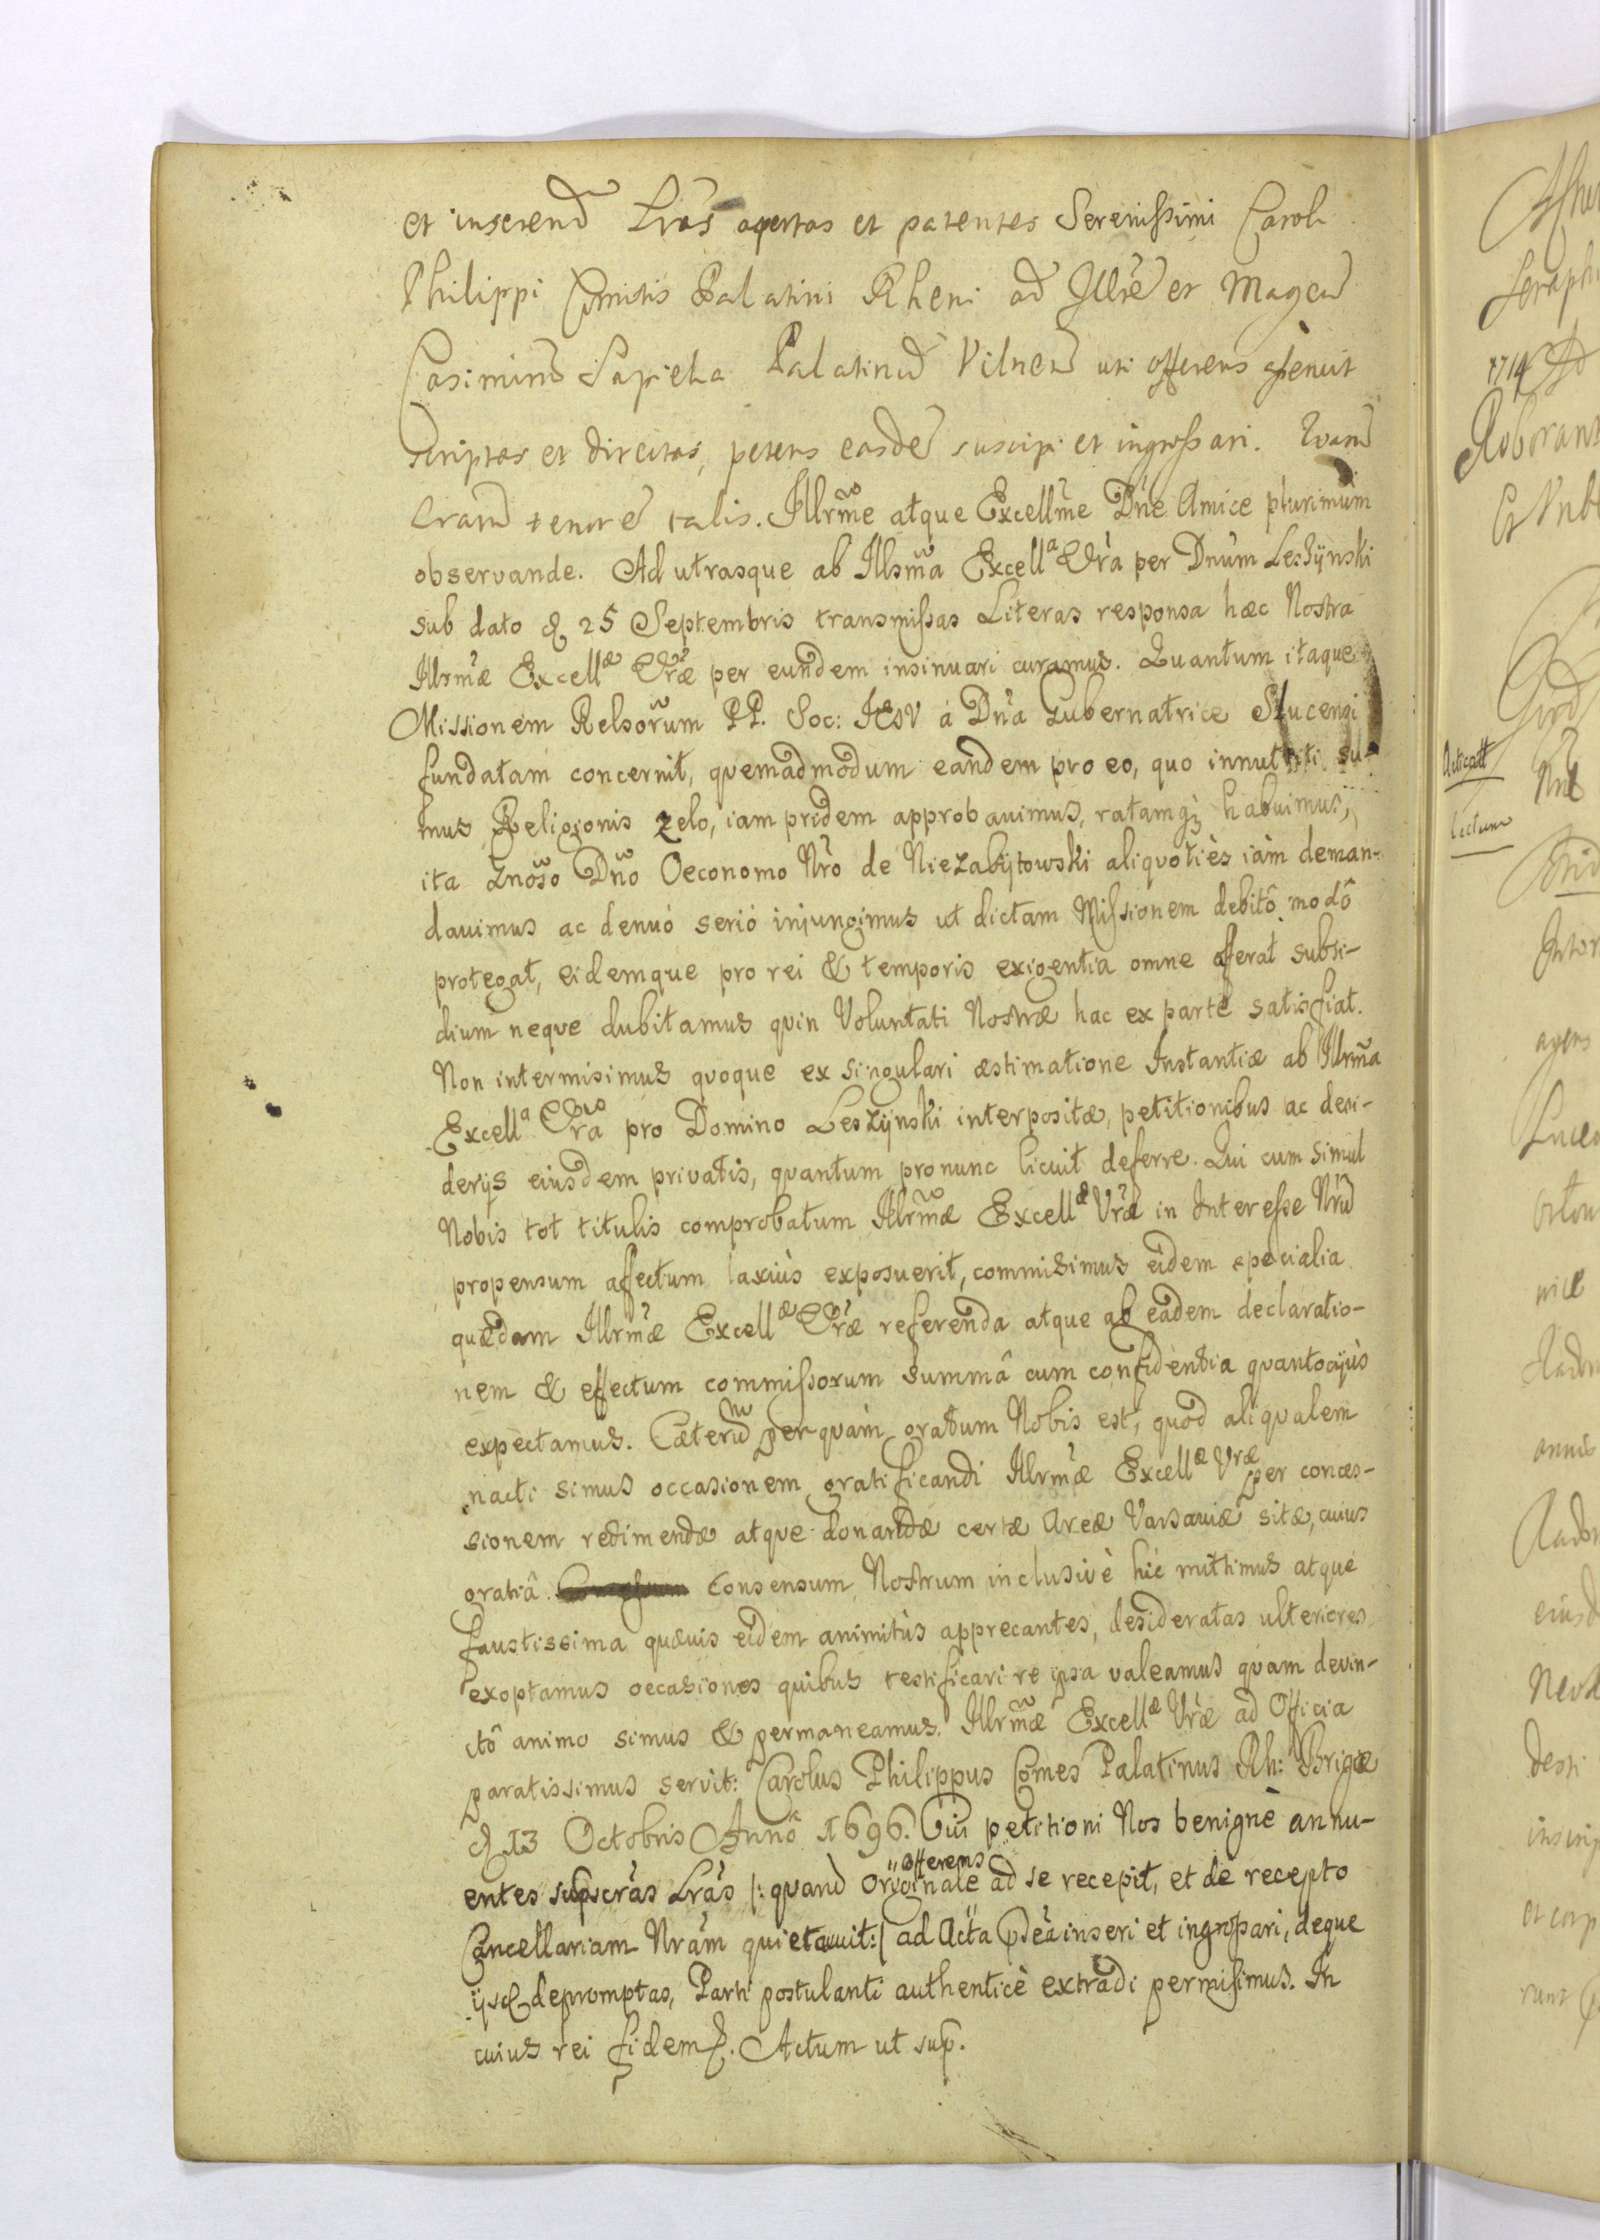 et inserend Lrãs apertas et patentes Serenissimi Caroli
Philippi Comitis Palatini Rheni ad Illrẽ et Magcũ
Casimirũ Sapieha Palatinũ Vilneñ uti offerens asseruit
scriptas et directas, petens easdẽ suscipi et ingrossari. Quarũ
Lrarũ tenorẽ talis. Illrm̃e atque Excellm̃e Dñe Amice plurimùm
observande. Ad utrasque ab Illsm̃a Excellª Vrã per Dnũm Leszÿnski
sub dato d 25 Septembris transmissas Literas responsa hæc Nostra
Illsmæ̃ Excellæ Vræ̃ per eundem insinuari curamus. Quantum itaque
Missionem Relsorũm PP. Soc: IESV à Dnã Gubernatrice Slucensi
fundatam concernit, quemadmodum eandem pro eo, quo innutriti su-
mus Religionis zelo, iam pridem approbauimus, ratamq; habuimus,
ita Gnõso Dnõ Oeconomo Nrõ de Niezabÿtowski aliquotiès iàm deman-
dauimus ac denuó serió injungimus ut dictam Missionem debitô modô
protegat, eidemque pro rei & temporis exigentia omne afferat subsi-
dium neque dubitamus quin Voluntati Nostræ hac ex parte satisfiat.
Non intermisimus quoque ex singulari æstimatione Instantiæ ab Illrm̃a
Excellª Vrã pro Domino Leszÿnski interpositæ, petitionibus ac desi-
derÿs eiusdem privatis, quantum pro nunc licuit deferre. Qui cum simul
Nobis tot titulis comprobatum Illrm̃æ Excellæ Vræ̃ in Interesse Nrũ
propensum affectum laxiùs exposuerit, commisimus eidem specialia
quædam Illrmæ̃ Excellæ Vræ̃ referenda atque ab eadem declaratio-
nem & effectum commissorum summâ cum confidentia quantocÿùs
expectamus. Cæterũ perquàm gratum Nobis est, quod aliqualem
nacti simus occasionem gratificandi Illrmæ̃ Excellæ Vræ per conces-
sionem redimendæ atque donandæ certæ Areæ Varsauiæ sitæ, cuius
gratiâ Consensum Nostrum inclusivè hic mittimus atque
faustissima quæuis eidem animitùs apprecantes, desideratas ulteriores
exoptamus occasiones quibus testificari re ipsa valeamus quam devin-
ctô animo simus & permaneamus. Illrm̃æ Excellæ Vræ̃ ad Officia
paratissimus servit: Carolus Philippus Comes Palatinus Rh: Brigæ
d 13 Octobris Annô 1696. Cui petitioni Nos benignè annu-
entes supscrãs Lrãs |: quarũ Orÿginale offerens ad se recepit, et de recepto
Cancellariam Nrãm quietauit:| ad Acta Psẽa inseri et ingrossari, deque
ÿsd depromptas, Parti postulanti authenticè extradi permisimus. In
cuius rei fidem. Actum ut sup.